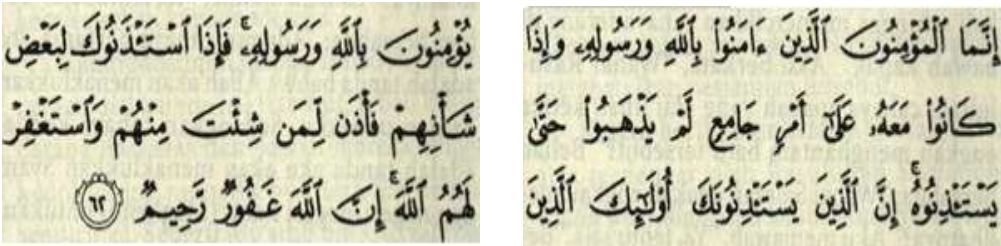 إِنَّمَا ٱلْمُؤْمِنُونَ ٱلَّذِينَ ءَامَنُوا۟ بِٱللَّهِ وَرَسُولِهِۦ وَإِذَا
كَانُوا۟ مَعَهُۥ عَلَىٰٓ أَمْرٍ جَامِعٍ لَّمْ يَذْهَبُوا۟ حَتَّىٰ
يَسْتَـْٔذِنُوهُ ۚ إِنَّ ٱلَّذِينَ يَسْتَـْٔذِنُونَكَ أُو۟لَـٰٓئِكَ ٱلَّذِينَ
يُؤْمِنُونَ بِٱللَّهِ وَرَسُولِهِۦ ۚ فَإِذَا ٱسْتَـْٔذَنُوكَ لِبَعْضِ
شَأْنِهِمْ فَأْذَن لِّمَن شِئْتَ مِنْهُمْ وَٱسْتَغْفِرْ
لَهُمُ ٱللَّهَ ۚ إِنَّ ٱللَّهَ غَفُورٌ رَّحِيمٌ ٦٢